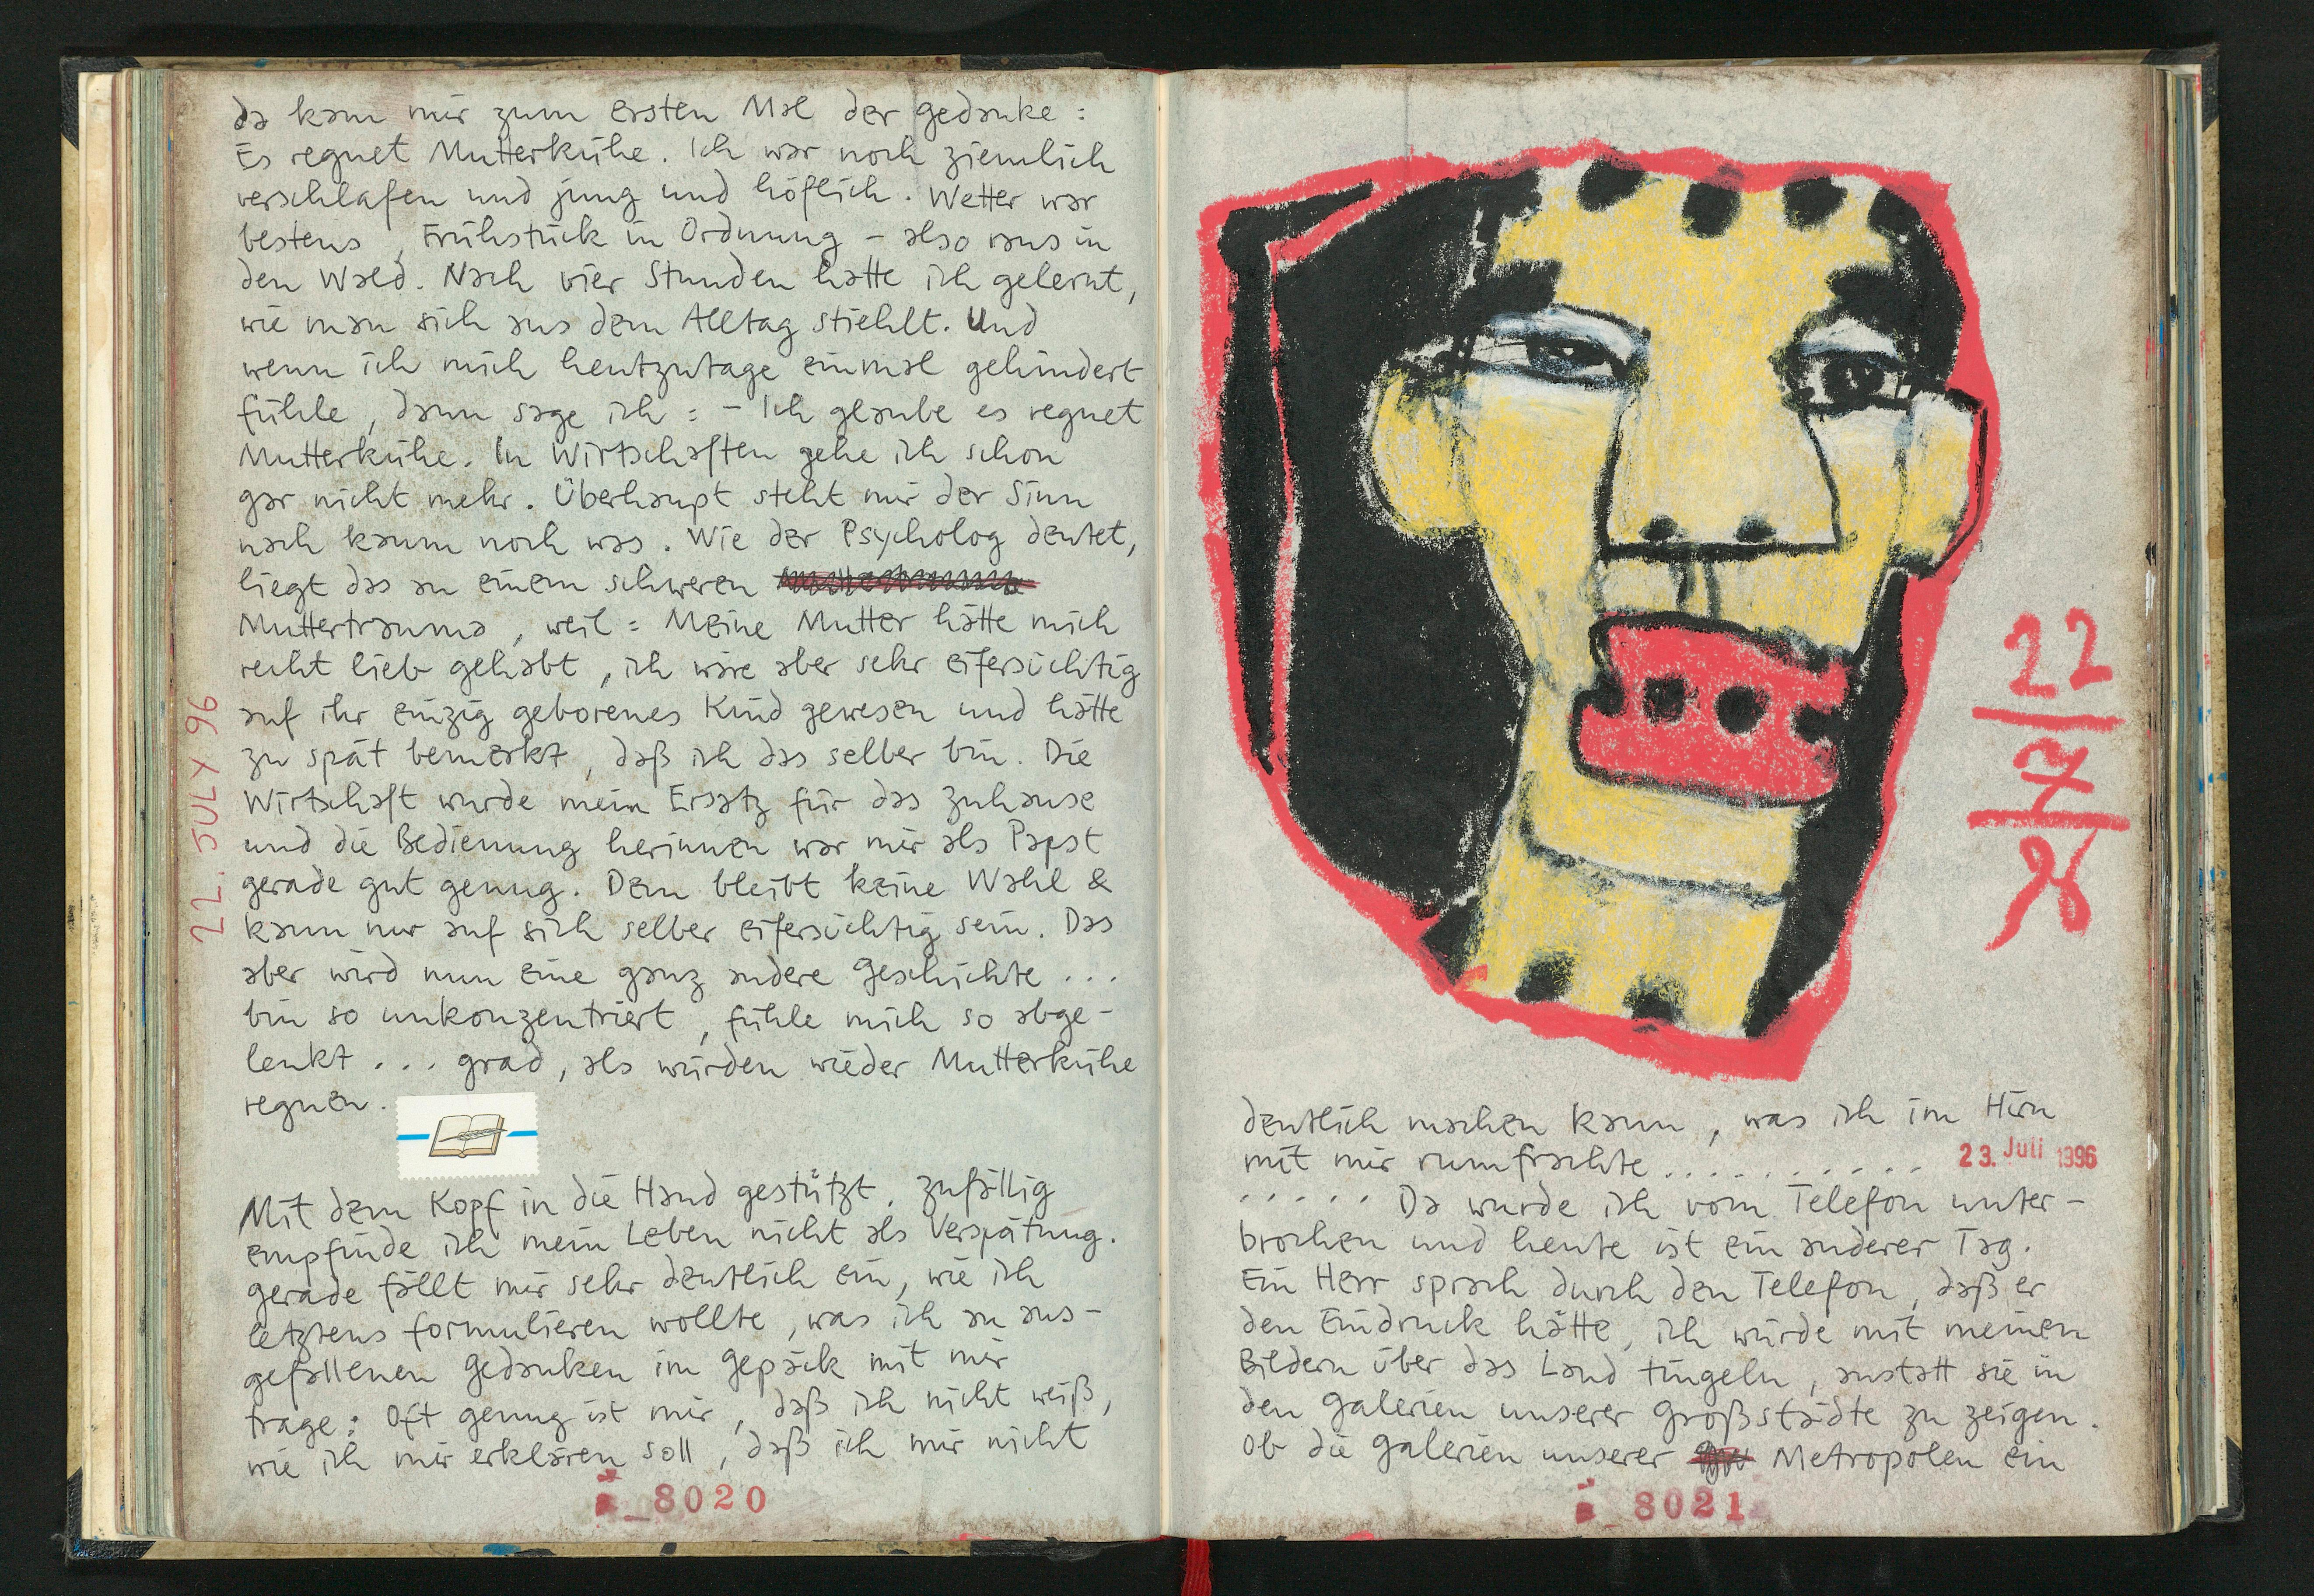 da kam mir zum ersten Mal der gedanke :
Es regnet Mutterkühe. Ich war noch ziemlich
verschlafen und jung und höflich. Wetter war
bestens, Frühstück in Ordnung – also raus in
den Wald. Nach vier Stunden hatte ich gelernt,
wie man sich aus dem Alltag stiehlt. Und
wenn ich mich heutzutage einmal gehindert
fühle, dann sage ich : – Ich glaube es regnet
Mutterkühe. In Wirtschaften gehe ich schon
gar nicht mehr. Überhaupt steht mir der Sinn
nach kaum noch was. Wie der Psycholog deutet,
liegt das an einem schweren
Muttertrauma, weil : Meine Mutter hätte mich
recht lieb gehabt, ich wäre aber sehr eifersüchtig
auf ihr einzig geborenes Kind gewesen und hätte
zu spät bemerkt, daß ich das selber bin. Die
Wirtschaft wurde mein Ersatz für das zuhause
und die Bedienung herinnen war mir als Papst
gerade gut genug. Dem bleibt keine Wahl &
kann nur auf sich selber eifersüchtig sein. Das
aber wird nun eine ganz andere Geschichte ...
bin so unkonzentriert, fühle mich so abge-
lenkt ... grad, als würden wieder Mutterkühe
regnen.
22. JULY 96
Mit dem Kopf in die Hand gestützt, zufällig
empfinde ich mein Leben nicht als Verspätung.
gerade fällt mir sehr deutlich ein, wie ich
letztens formulieren wollte, was ich an aus-
gefallenen gedanken im gepäck mit mir
trage : Oft genug ist mir, daß ich nicht weiß,
wie ich mir erklären soll, daß ich mir nicht
8020
22
7
96
deutlich machen kann, was ich im Hirn
mit mir rumfrachte...........
23. Juli 1996
..... Da wurde ich vom Telefon unter-
brochen und heute ist ein anderer Tag.
Ein Herr sprach durch den Telefon, daß er
den Eindruck hätte, ich würde mit meinen
Bildern über das Land tingeln, anstatt sie in
den galerien unserer großstädte zu zeigen.
Ob die galerien unserer Metropolen ein
8021